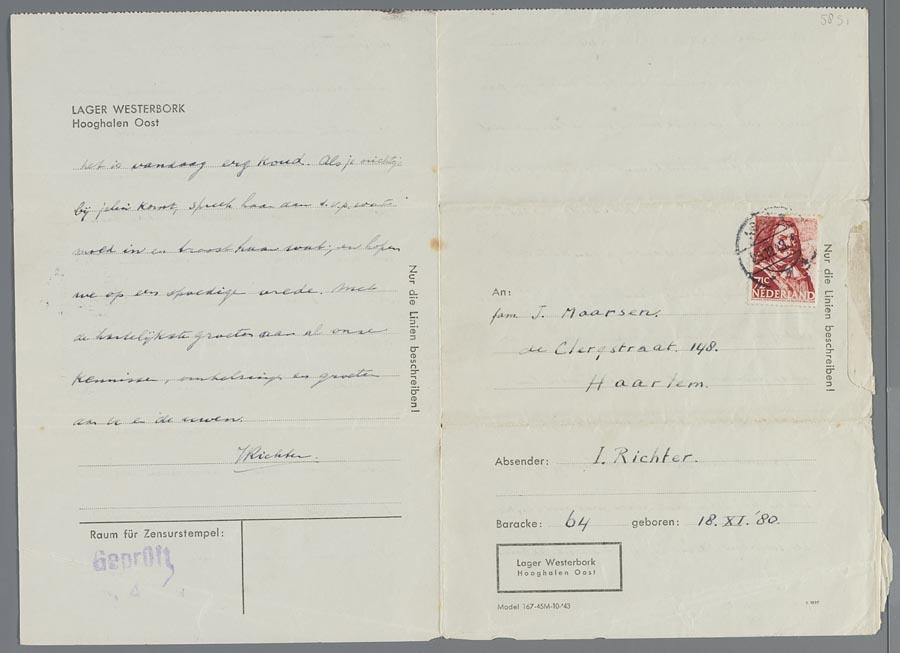 58 51
LAGER WESTERBORK
Hooghalen Oost
het is vandaag erg koud. Als je
bij komt, spreek haar aan s.v.p.
moed in en troost haar wat, en hopen
we op een spoedige vrede. Met
de hartelijkste groeten aan al onze
kennissen, omhelsing en groeten
aan u en de uwen.
IRichter.
Nur die Linien beschreiben!
Raum für Zensurstempel:
Geprüft
4
NEDERLAND
Nur die Linien beschreiben!
An:
fam J. Maarsen.
de Clerqstraat. 148.
Haarlem.
Absender: I. Richter.
Baracke: 64 geboren: 18. XI. '80.
Lager Westerbork
Hooghalen Oost
Model 167-45M-10-'43